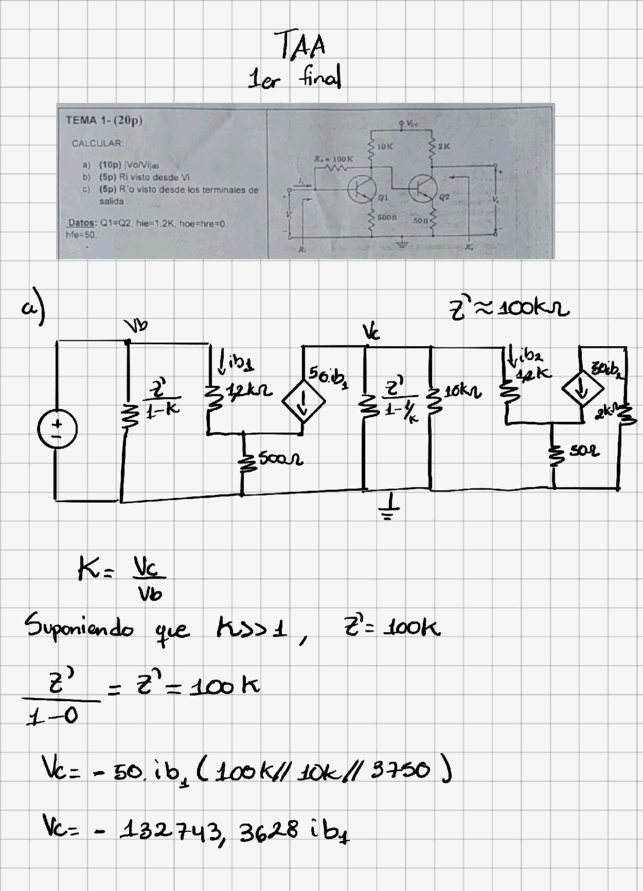 TAA
1er final
TEMA 1- (20p)
CALCULAR:
a) (10p) |Vo/Vi|
b) (5p) Ri visto desde Vi
c) (5p) R'o visto desde los terminales de
salida
Datos: Q1=Q2, hie=1.2K, hoe=hre=0,
hfe=50.
Vcc
10K
2K
= 100K
Q1
Q2
500Ω
50Ω
a)
Z' ≈ 100kΩ
Vb
Z'/1-K
ib1
1,2kΩ
50.ib1
500Ω
Vc
Z'/1-1/K
10kΩ
ib2
1,2K
50ib2
2kΩ
50Ω
K = Vc/Vb
Suponiendo que K>>1, Z' = 100K
Z'/1-0 = Z' = 100K
Vc = - 50. ib1 (100k// 10k// 3750)
Vc = - 132743,3628 ib1